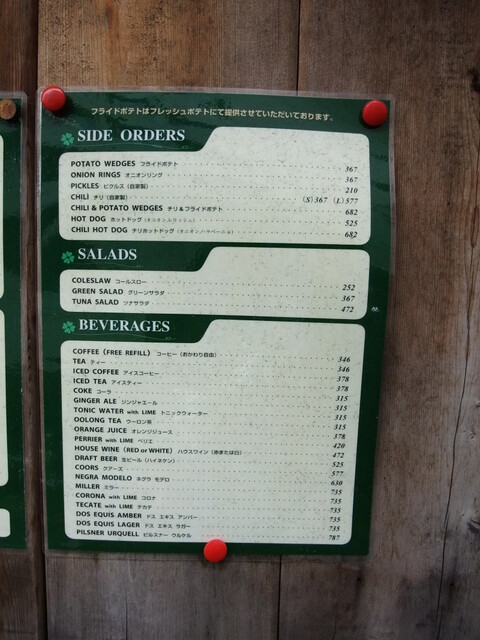 フライドポテトはフレッシュポテトにて提供させていただいております。
SIDE ORDERS
POTATO WEDGES フライドポテト 367
ONION RINGS オニオンリング 367
PICKLES ピクルス (自家製) 210
CHILI チリ (自家製) (S) 367 (L) 577
CHILI & POTATO WEDGES チリ&フライドポテト 682
HOT DOG ホットドッグ 525
CHILI HOT DOG チリホットドッグ 682
SALADS
COLESLAW コールスロー 252
GREEN SALAD グリーンサラダ 367
TUNA SALAD ツナサラダ 472
BEVERAGES
COFFEE (FREE REFILL) コーヒー (おかわり自由) 346
TEA ティー 346
ICED COFFEE アイスコーヒー 378
ICED TEA アイスティー 378
COKE コーラ 315
GINGER ALE ジンジャエール 315
TONIC WATER with LIME トニックウォーター 315
OOLONG TEA ウーロン茶 315
ORANGE JUICE オレンジジュース 378
PERRIER with LIME ペリエ 420
HOUSE WINE (RED or WHITE) ハウスワイン (赤または白) 472
DRAFT BEER 生ビール (ハイネケン) 525
COORS クアーズ 577
NEGRA MODELO ネグラ モデロ 630
MILLER ミラー 735
CORONA with LIME コロナ 735
TECATE with LIME テカテ 735
DOS EQUIS AMBER ドス エキス アンバー 735
DOS EQUIS LAGER ドス エキス ラガー 735
PILSNER URQUELL ピルスナー ウルケル 787